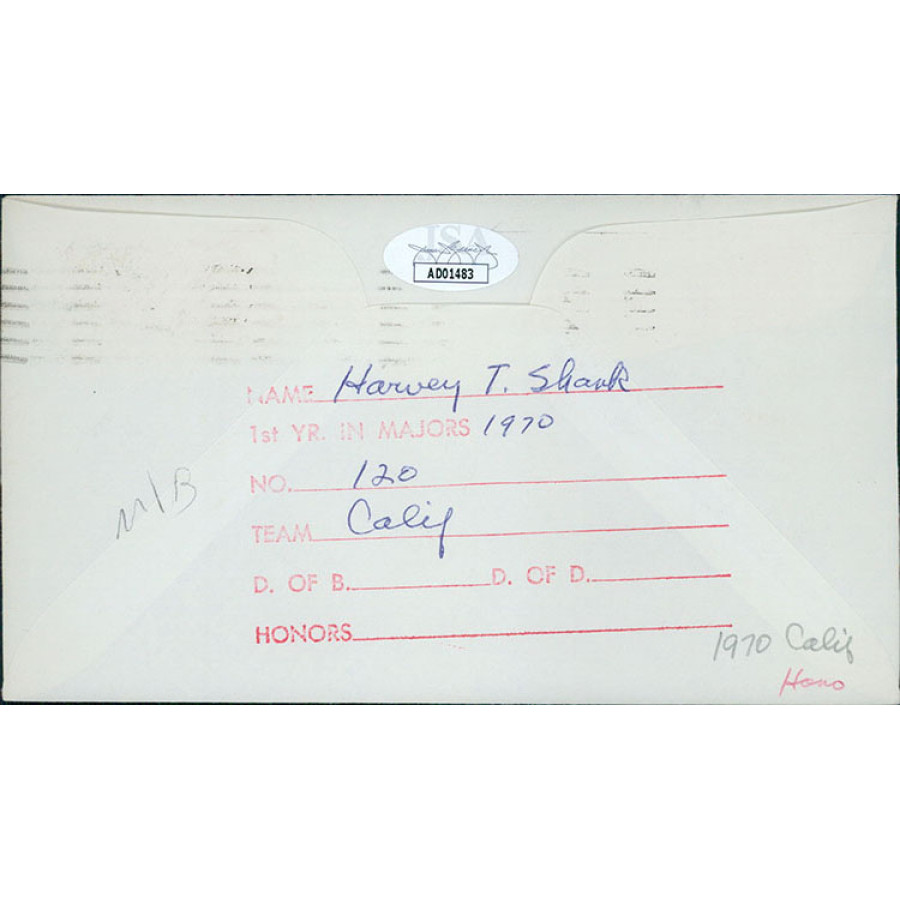 JSA
AD01483
NAME Harvey T. Shank
1st YR. IN MAJORS 1970
NO. 120
TEAM Calif
D. OF B. D. OF D.
HONORS
M/B
1970 Calif
Hono